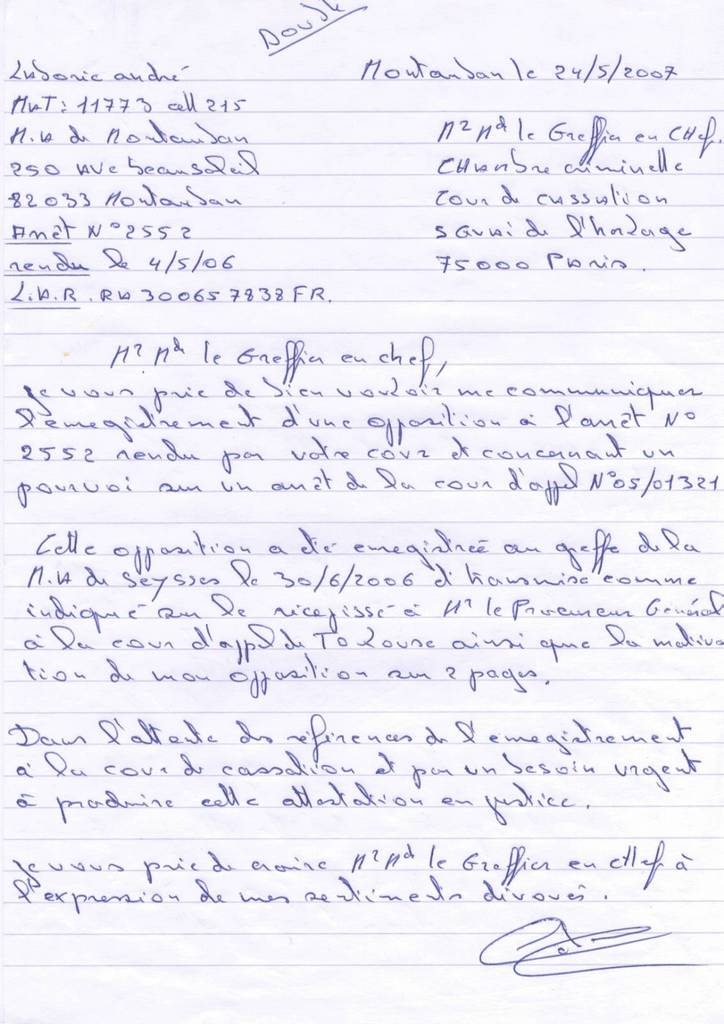 Double
Montauban le 24/5/2007
Ludovic andré
MAT: 11773 cell 215
M.A de Montauban
250 AVe beausoleil
82033 Montauban
Arrêt N°2552
rendu le 4/5/06
L.A.R. RA 30065 7838 FR.
Mr Md le Greffier en CHef.
CHambre criminelle
Cour de cassation
5 Quai de l'horloge
75000 Paris.
Mr Md le Greffier en chef,
je vous prie de bien vouloir me communiquer
l'enregistrement d'une opposition à l'arrêt N°
2552 rendu par votre cour et concernant un
pourvoi sur un arrêt de la cour d'appel N°05/01321
Cette opposition a été enregistrée au greffe de la
M.A de Seysses le 30/6/2006 et transmise comme
indiqué sur le récépissé à Mr le Procureur Général
à la cour d'appel de Toulouse ainsi que la motiva
tion de mon opposition sur 2 pages.
Dans l'attente des références de l'enregistrement
à la cour de cassation et par un besoin urgent
à produire cette attestation en justice.
je vous prie de croire Mr Md le Greffier en cHef à
l'expression de mes sentiments dévoués.